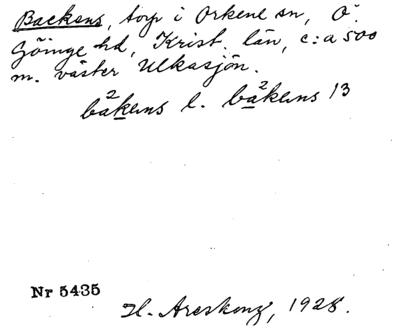 Backens, torp i Örkene sn, Ö.
Göinge hd, Krist. län, c:a 500
m. väster Ulkasjön.
bakens l. bakens 13
Nr 5435
H. Areskoug, 1928.